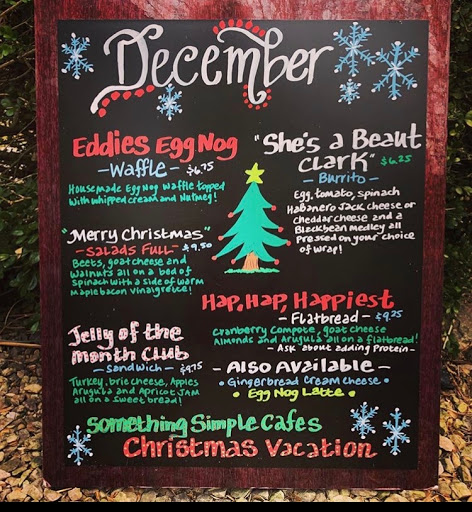 December
Eddies Egg Nog
- Waffle - $6.75
Housemade Egg Nog waffle topped
with whipped cream and Nutmeg!
"She's a Beaut
Clark" $6.25
- Burrito -
Egg, tomato, spinach
Habanero Jack cheese or
cheddar cheese and a
Blackbean medley all
Pressed on your choice
of wrap!
"Merry Christmas"
- Salads Full - $9.50
Beets, goat cheese and
walnuts all on a bed of
spinach with a side of warm
maple bacon vinaigreuce!
Hap, Hap, Happiest
- Flatbread - $9.25
Cranberry Compote, goat cheese
Almonds and Arugula all on a flatbread!
- Ask about adding Protein -
Jelly of the
month Club
- Sandwich - $9.75
Turkey, brie cheese, Apples
Arugula and Apricot JAM
all on a sweet bread!
- Also Available -
• Gingerbread Cream cheese •
• Egg Nog Latte •
Something Simple Cafes
Christmas Vacation